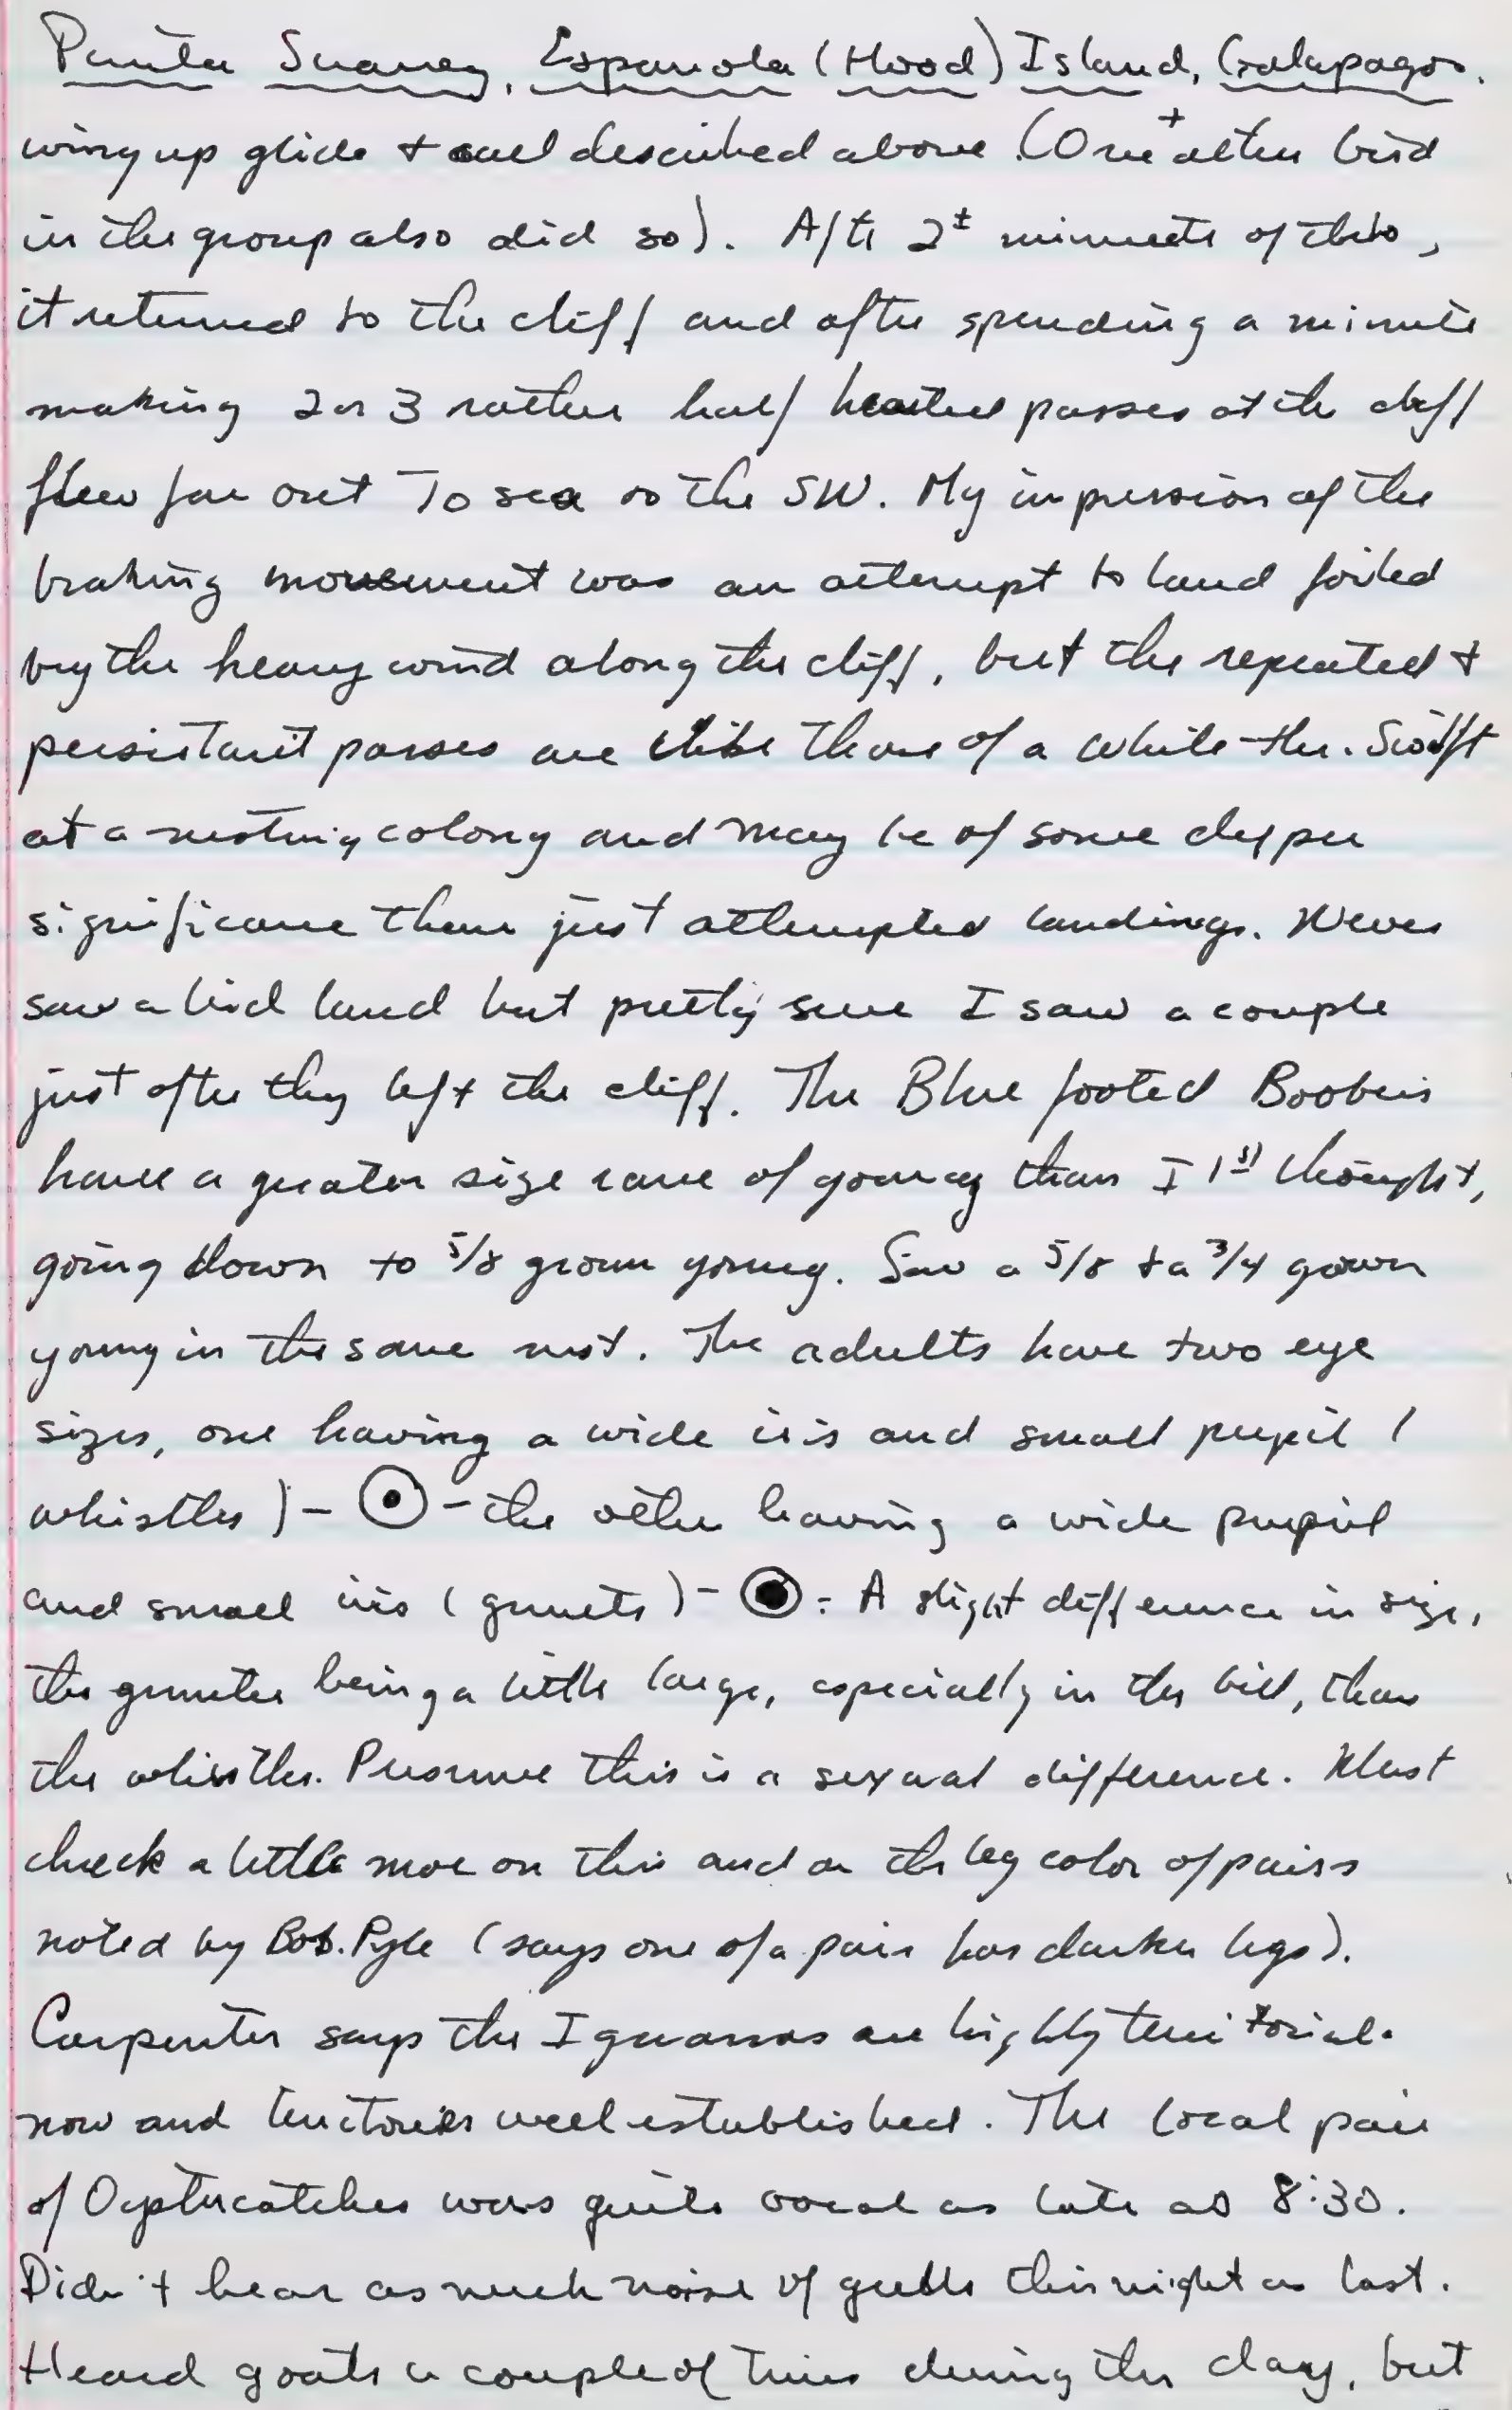 Punta Suarez, Espanola (Hood) Island, Galapagos.
wing up glide + call described above. (One + other bird
in the group also did so). After 2± minutes of this,
it returned to the cliff and after spending a minute
making 2 or 3 rather half hearted passes at the cliff
flew far out to sea to the SW. My impression of the
braking movement was an attempt to land foiled
by the heavy wind along the cliff, but the repeated +
persistant passes are like those of a White-thr. Swift
at a nesting colony and may be of some deeper
significance than just attempted landings. Never
saw a bird land but pretty sure I saw a couple
just after they left the cliff. The Blue footed Boobies
have a greater size range of young than I 1st thought,
going down to 5/8 grown young. Saw a 5/8 + a 3/4 grown
young in the same nest. The adults have two eye
sizes, one having a wide iris and small pupil (
whistles) - - the other having a wide pupil
and small iris (grunts) - - A slight difference in size,
the grunter being a little large, especially in the bill, than
the whistler. Presume this is a sexual difference. Must
check a little more on this and on the leg color of pairs
noted by Bob. Pyle (says one of a pair has darker legs).
Carpenter says the Iguanas are highly territorial.
now and territories well established. The local pair
of Oystercatcher was quite vocal as late as 8:30.
Didn't hear as much noise of gulls this night as last.
Heard goats a couple of times during the day, but